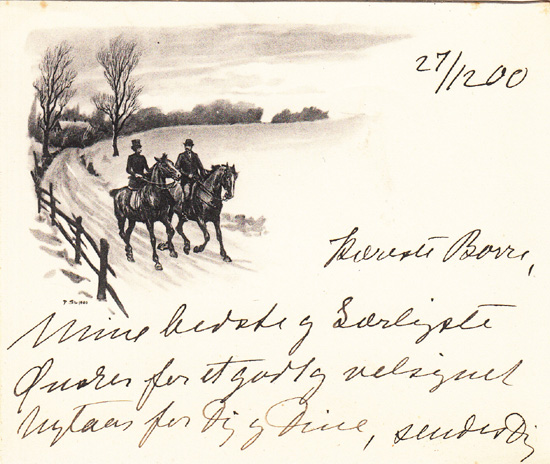 27/12 00
Kæreste Borre,
Mine bedste og Kærligste
Ønsker for et godt og velsignet
Nytaar for Dig og Dine, sender Dig